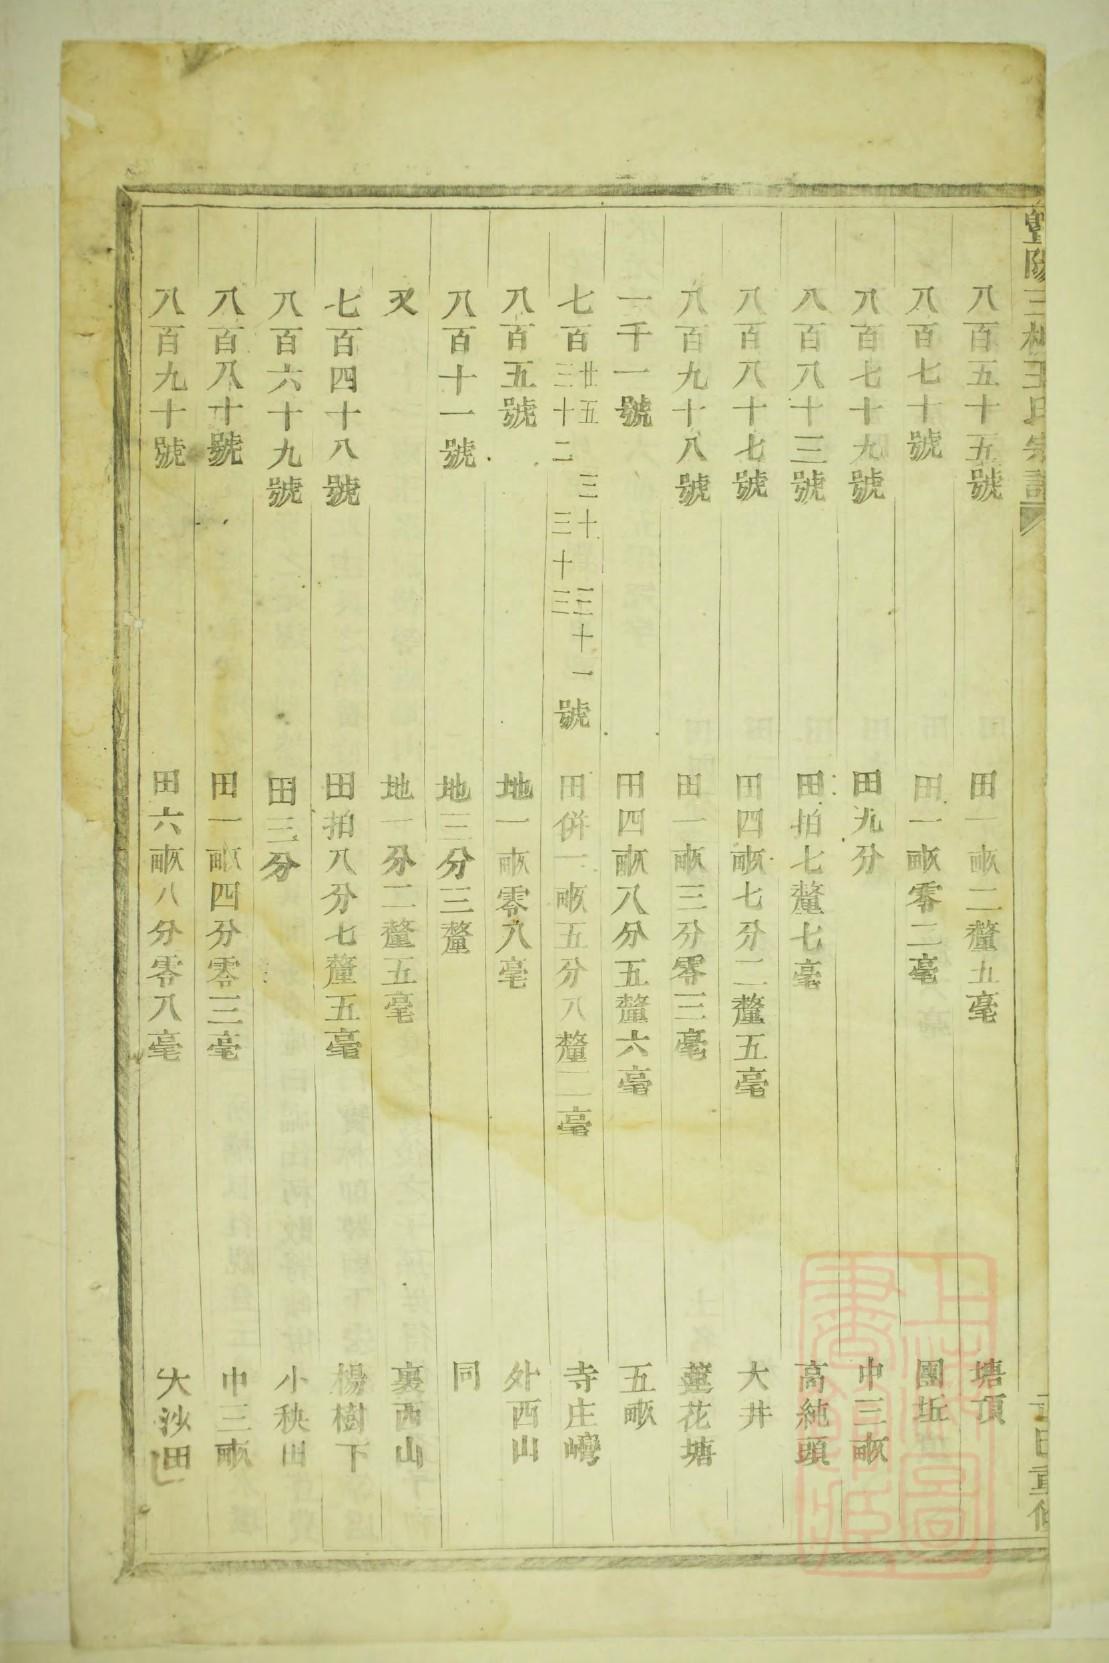 八百五十五號 田一畝二釐五毫 塘頂
八百七十號 田一畝零二毫 團坵
八百七十九號 田九分 中三畝
八百八十三號 田拍七釐七毫 高純頭
八百八十七號 田四畝七分二釐五毫 大井
八百九十八號 田一畝三分零三毫 蓮花塘
一千一號 田四畝八分五釐六毫 五畝
七百廿五 三十 三十一 三十二 三十三 號 田併一畝五分八釐二毫 寺庄灣
八百五號 地一畝零八毫 外西山
八百十一號 地三分三釐 同
又 地一分二釐五毫 裏西山
七百四十八號 田拍八分七釐五毫 楊樹下
八百六十九號 田三分 小秧田
八百八十號 田一畝四分零三毫 中三畝
八百九十號 田六畝八分零八毫 大沙田